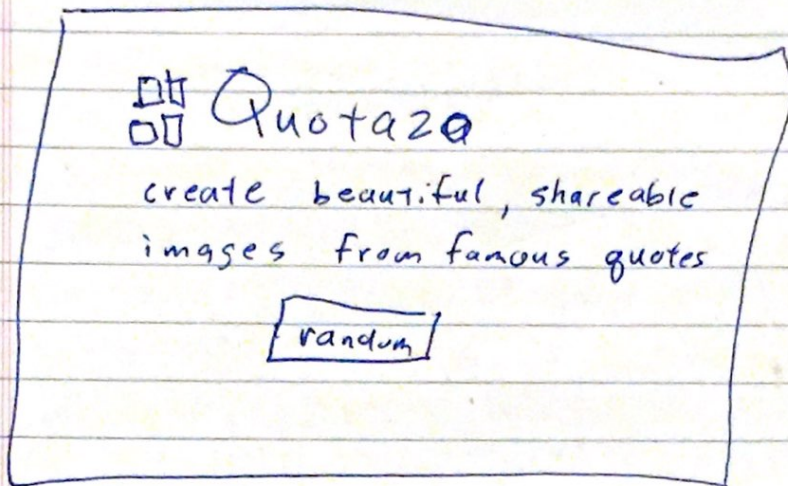 Quotazo
create beautiful, shareable
images from famous quotes
random